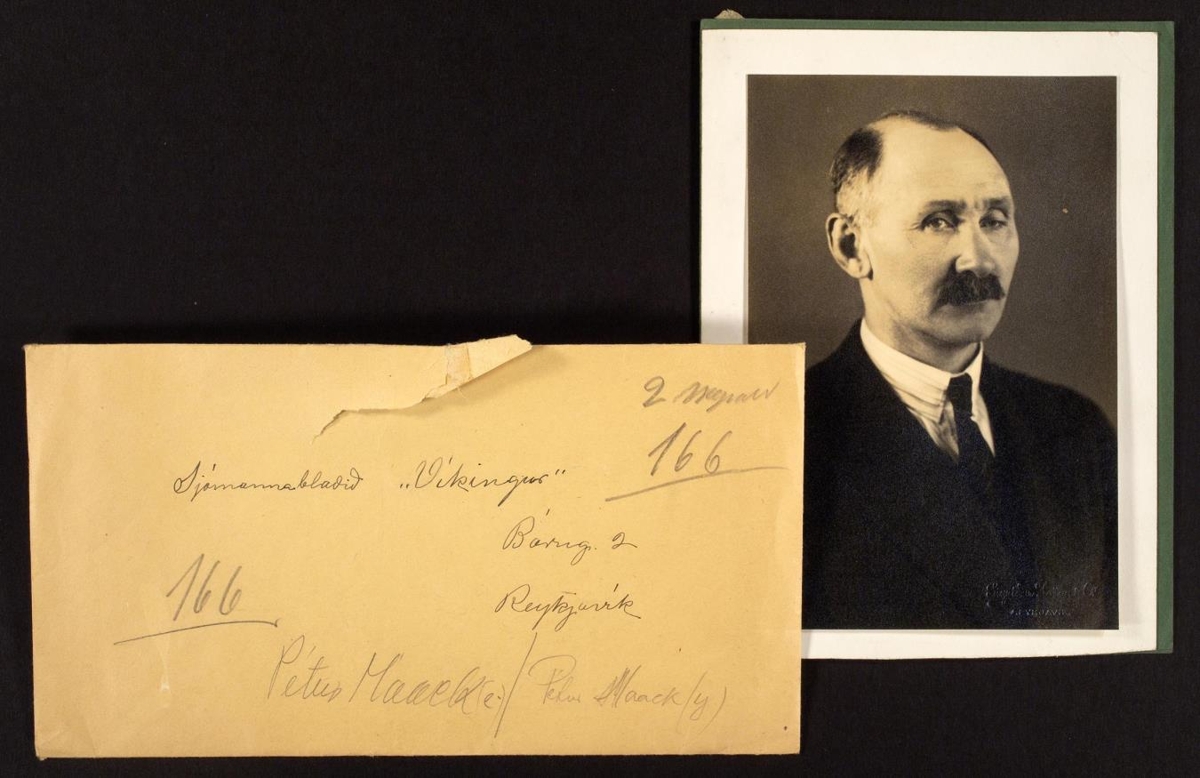 2
166
Sjómannablaðið „Víkingur"
Bárug. 2
Reykjavík
166
Pétur Maack (e.) / Pétur Maack (y)